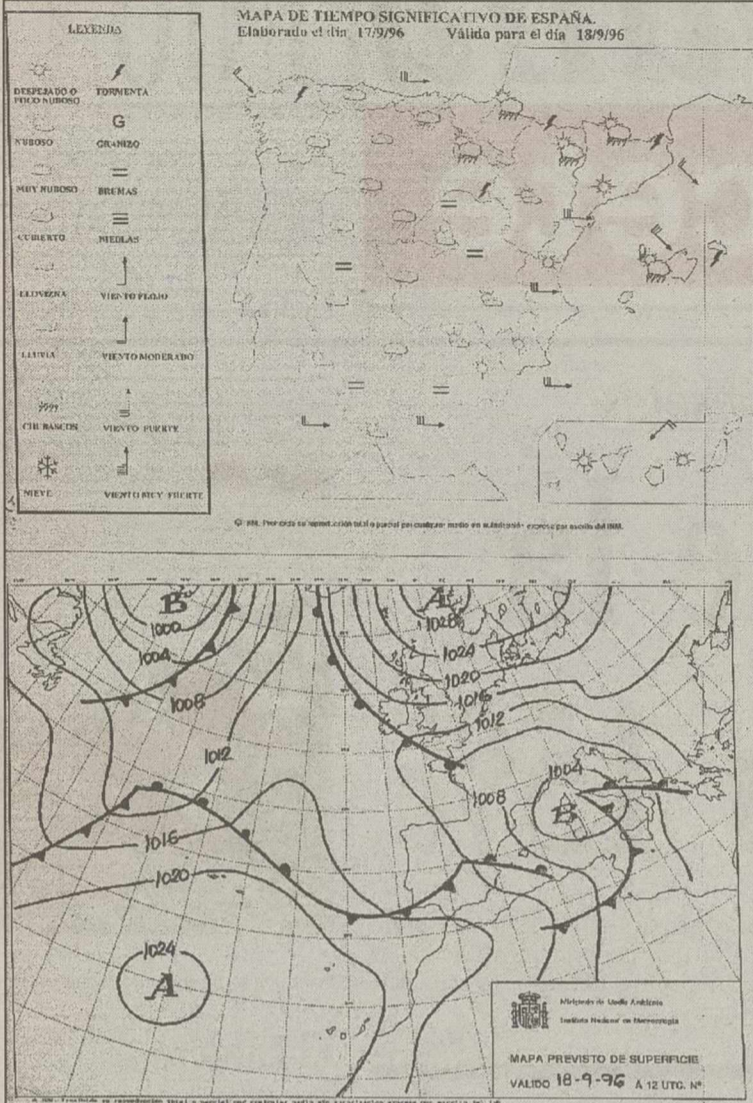 LEYENDA
DESPEJADO O POCO NUBOSO
TORMENTA
NUBOSO
G
GRANIZO
MUY NUBOSO
BRUMAS
CUBIERTO
NIEBLAS
LLOVIZNA
VIENTO FLOJO
LLUVIA
VIENTO MODERADO
CHUBASCOS
VIENTO FUERTE
NIEVE
VIENTO MUY FUERTE
MAPA DE TIEMPO SIGNIFICATIVO DE ESPAÑA.
Elaborado el dia 17/9/96 Válido para el día 18/9/96
B
1000
1004
1008
1012
1016
1020
1024
A
A
1028
1024
1020
1016
1012
1008
1004
B
Ministerio de Medio Ambiente
Instituto Nacional de Meteorología
MAPA PREVISTO DE SUPERFICIE
VALIDO 18-9-96 A 12 UTC. Nº